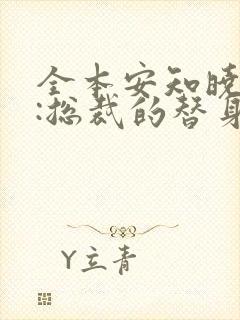 全本安知晓
:总裁的替身
Y立青